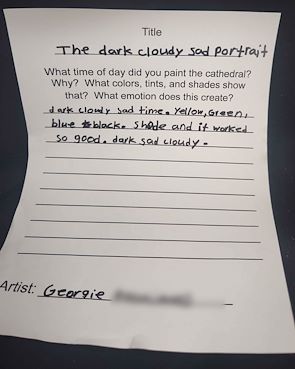 Title
The dark cloudy sad Portrait
What time of day did you paint the cathedral?
Why? What colors, tints, and shades show
that? What emotion does this create?
dark cloudy sad time. Yellow, Green,
blue black. Shade and it worked
so good. dark sad cloudy.
Artist: Georgie